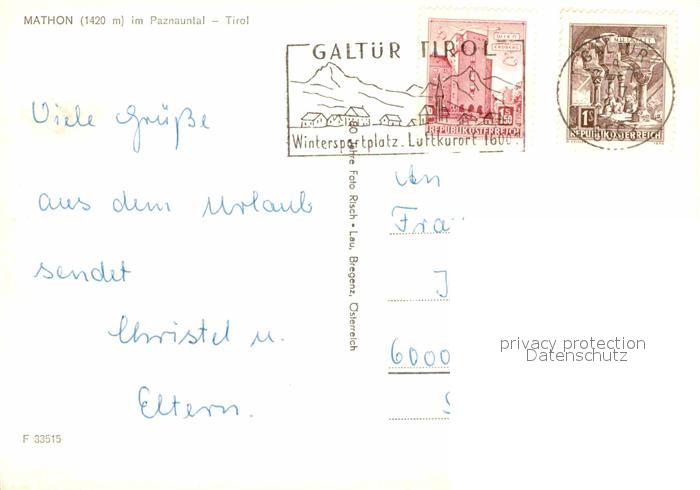 MATHON (1420 m) im Paznauntal – Tirol
GALTÜR TIROL
Wintersportplatz. Luftkurort 1600
WIEN
ERDBERG
1.50
REPUBLIK ÖSTERREICH
1S
REPUBLIK ÖSTERREICH
Viele Grüße
aus dem Urlaub
sendet
Christel u.
Eltern.
Jahre Foto Risch • Lau, Bregenz, Österreich
An
6000
privacy protection
Datenschutz
F 33515